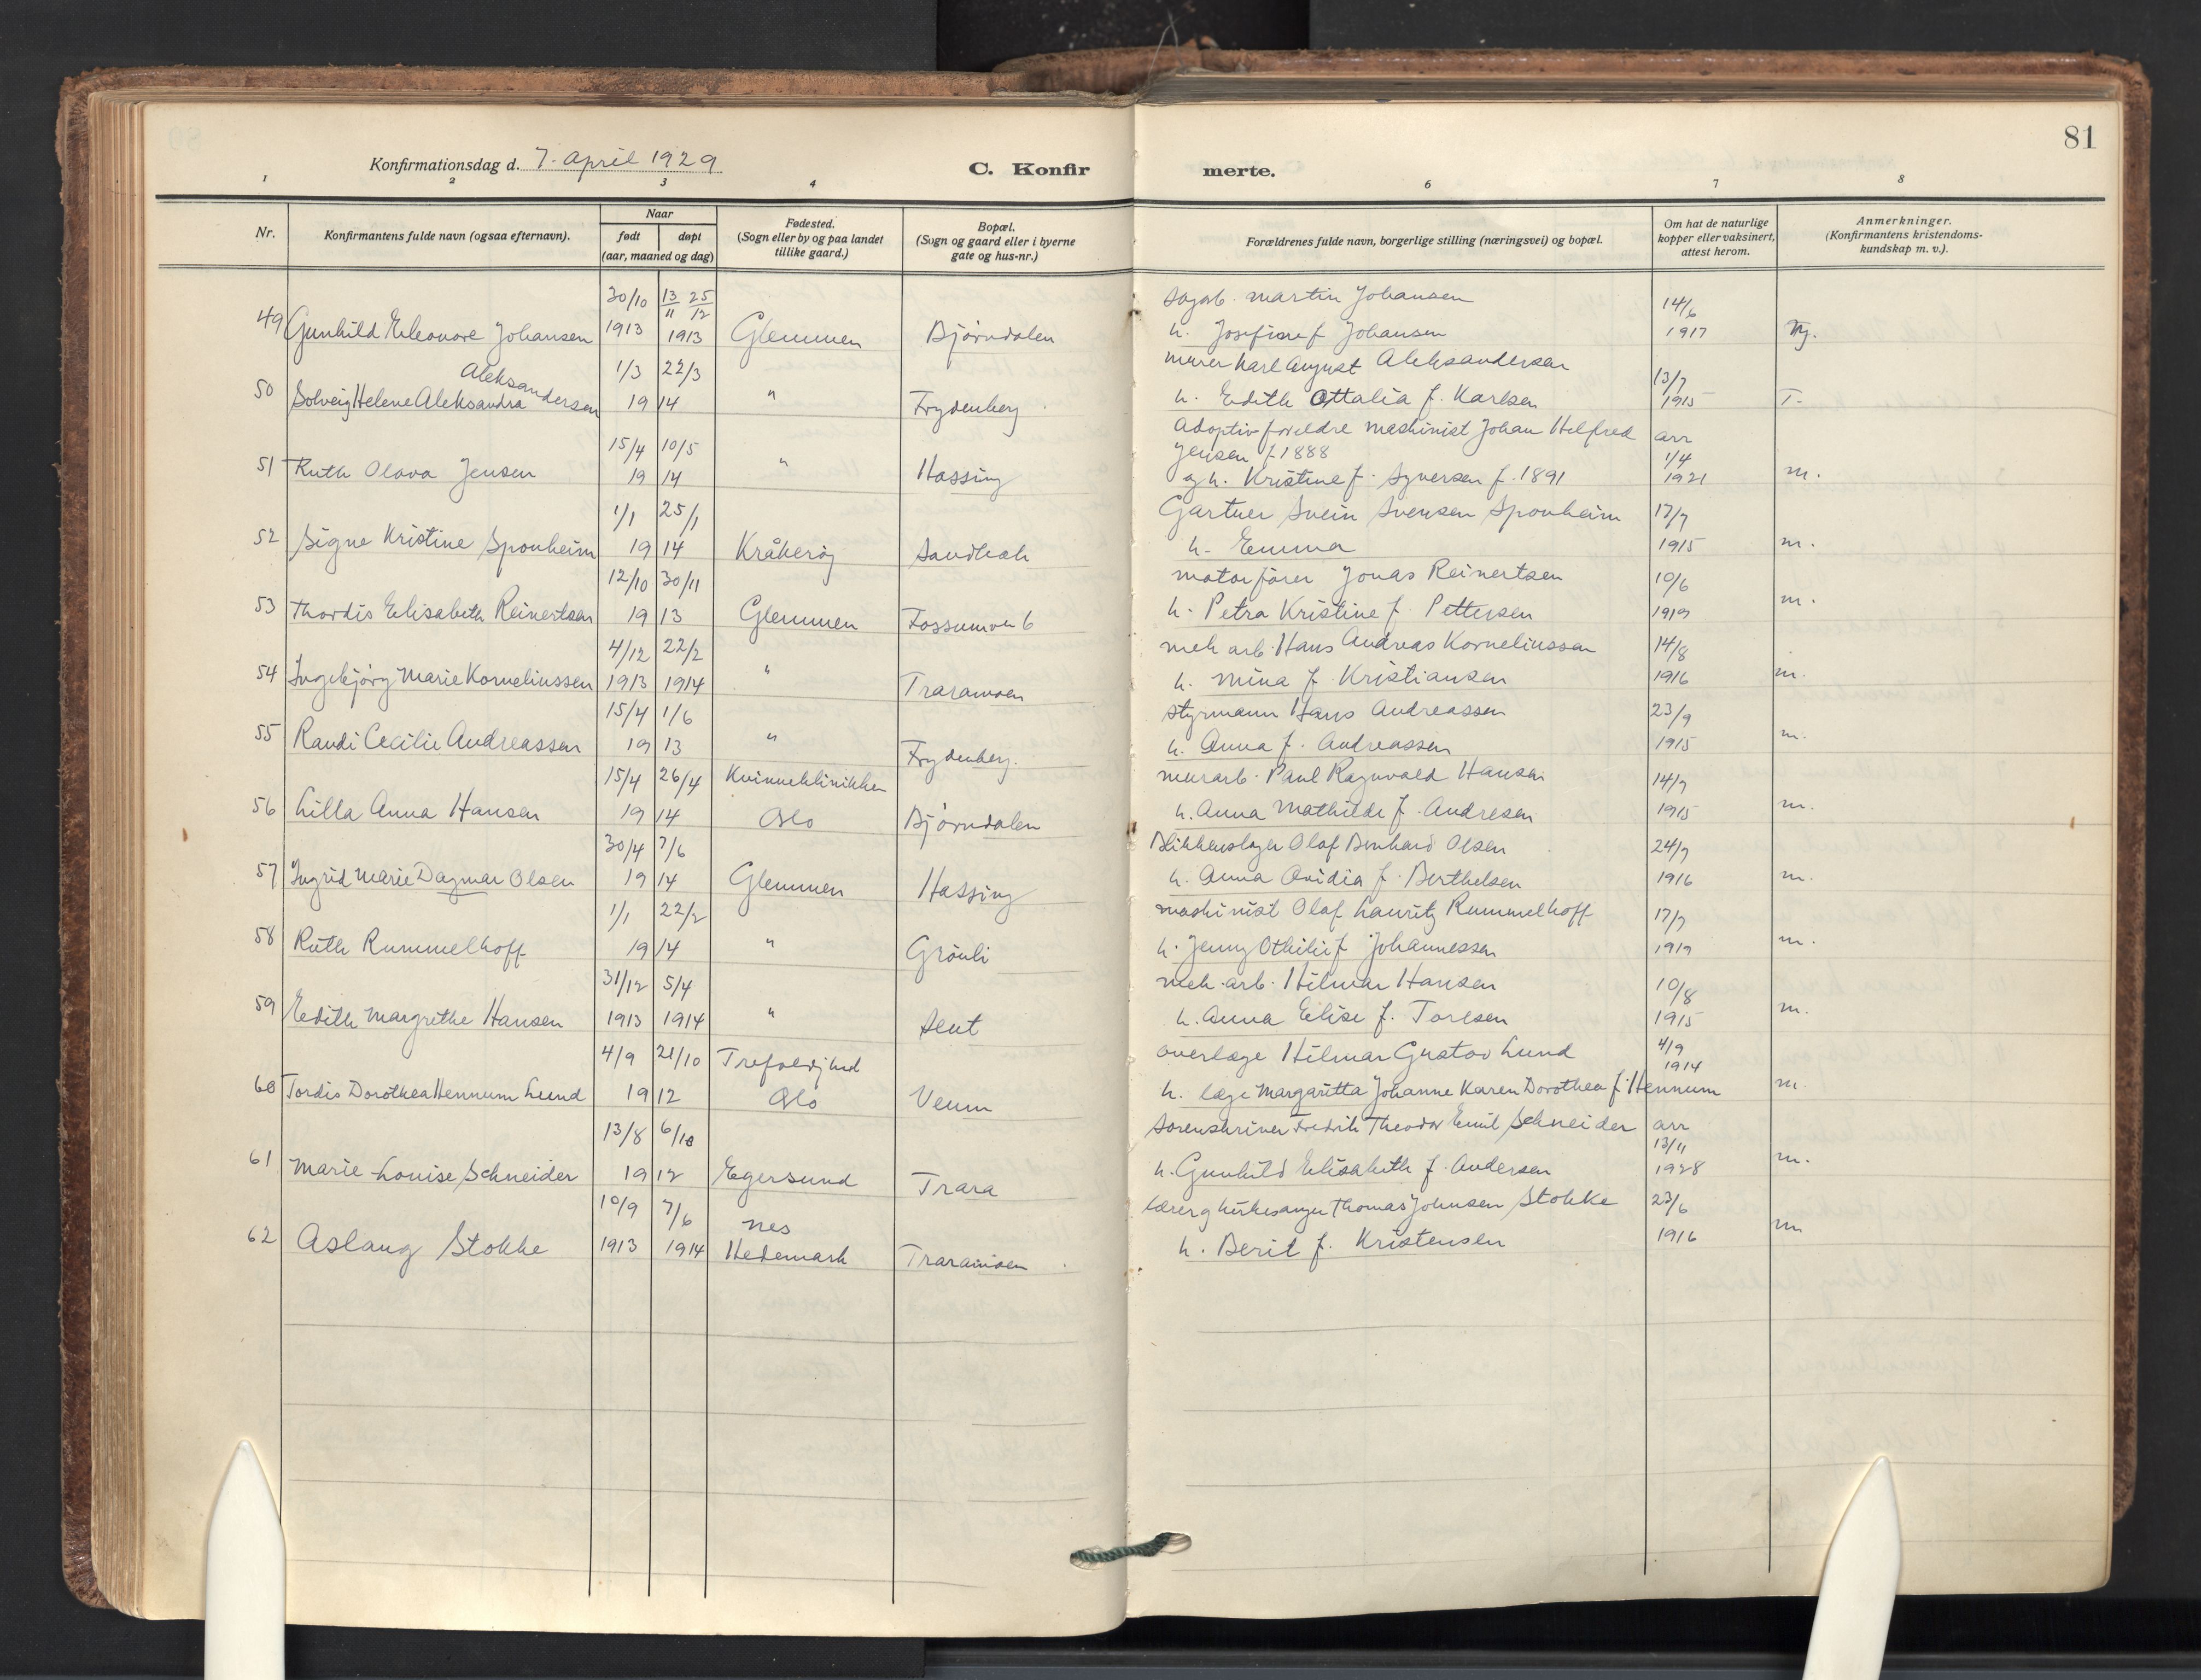 81
Konfirmationsdag d. 7. April 1929
C. Konfirmerte.
1 2 3 4 6 7 8
Nr.
Konfirmantens fulde navn (ogsaa efternavn).
Naar
født døpt
(aar, maaned og dag)
Fødested.
(Sogn eller by og paa landet
tillike gaard.)
Bopæl.
(Sogn og gaard eller i byerne
gate og hus-nr.)
Forældrenes fulde navn, borgerlige stilling (næringsvei) og bopæl.
Om hat de naturlige
kopper eller vaksinert,
attest herom.
Anmerkninger.
(Konfirmantens kristendoms-
kundskap m. v.).
30/10 13/11 25/12 Sagarb. Martin Johansen 14/6
49 Gunhild Eleonore Johansen 1913 1913 Glemmen Bjørndalen h. Josefine f. Johansen 1917
Aleksandersen 1/3 22/3 murer Karl August Aleksandersen 13/7
50 Solveig Helene Aleksandra 19 14 " Frydenberg h. Edith Ottalia f. Karlsen 1915 T.
15/4 10/5 Adoptivforeldre maskinist Johan Helfred arr
Jensen f. 1888 1/4
51 Ruth Olava Jensen 19 14 " Hassing og h. Kristine f. Syversen f. 1891 1921 m.
1/1 25/1 Gartner Svein Svensen Sponheim 17/7
52 Signe Kristine Sponheim 19 14 Kråkerøy h. Emma 1915 m.
12/10 30/11 motorfører Jonas Reinertsen 10/6
53 Thordis Elisabeth Reinertsen 19 13 Glemmen Fossumvn 6 h. Petra Kristine f. Pettersen 1919 m.
4/12 22/2 mek arb. Hans Andreas Korneliussen 14/8
54 Ingebjørg Marie Korneliussen 1913 1914 " Traramoen h. Mina f. Kristiansen 1916 m.
15/4 1/6 styrmann Hans Andreassen 23/9
55 Randi Cecilie Andreassen 19 13 " Frydenberg. h. Anna f. Andreassen 1915 m.
15/4 26/4 Kvinneklinikken murarb. Paul Ragnvald Hansen 14/7
56 Lilla Anna Hansen 19 14 Oslo Bjørndalen h. Anna Mathilde f. Andresen 1915 m.
30/4 7/6 Blikkenslager Olaf Bernhard Olsen 24/7
57 Ingrid Marie Dagmar Olsen 19 14 Glemmen Hassing h. Anna Ovidia f. Berthelsen 1916 m.
1/1 22/2 maskinist Olaf Lauritz Rummelhoff 17/7
58 Ruth Rummelhoff 19 14 " Grønli h. Jenny Othilie f. Johannessen 1919 m.
31/12 5/4 mek. arb. Hilmar Hansen 10/8
59 Edith Margrethe Hansen 1913 1914 " h. Anna Elise f. Toresen 1915 m.
4/9 21/10 Trefoldighed overlæge Hilmar Gustav Lund 4/9
1914
60 Tordis Dorothea Hennum Lund 19 12 Oslo Veum h. læge Margaritta Johanne Karen Dorothea f. Hennum m.
13/8 6/10 Sorenskriver Fredrik Theodor Emil Schneider arr
13/11
61 Marie Louise Schneider 19 12 Egersund Trara h. Gunhild Elisabeth f. Andersen 1928 m.
10/9 7/6 Nes lærer og kirkesanger Thomas Johnsen Stokke 23/6
62 Aslaug Stokke 1913 1914 Hedemark Traramoen h. Berit f. Kristensen 1916 m